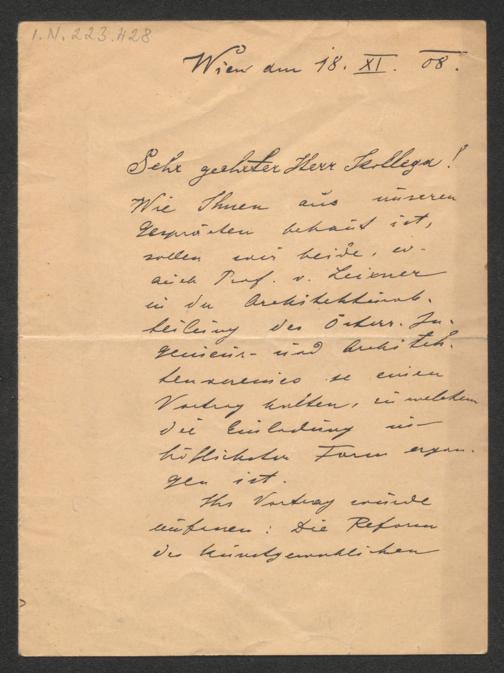 I.N. 223.428
Wien am 18. XI. 08.
Sehr geehrter Herr Kollega!
Wie Ihnen aus unseren
Gesprächen bekannt ist,
sollen wir beide, ev.
auch Prof. v. Leixner
in der Architektenab-
teilung des Österr. In-
genieur- und Architek-
tenvereines je einen
Vortrag halten, zu welchem
die Einladung in
höflichster Form ergan-
gen ist.
Ihr Vortrag würde
umfassen: Die Reform
des kunstgewerblichen